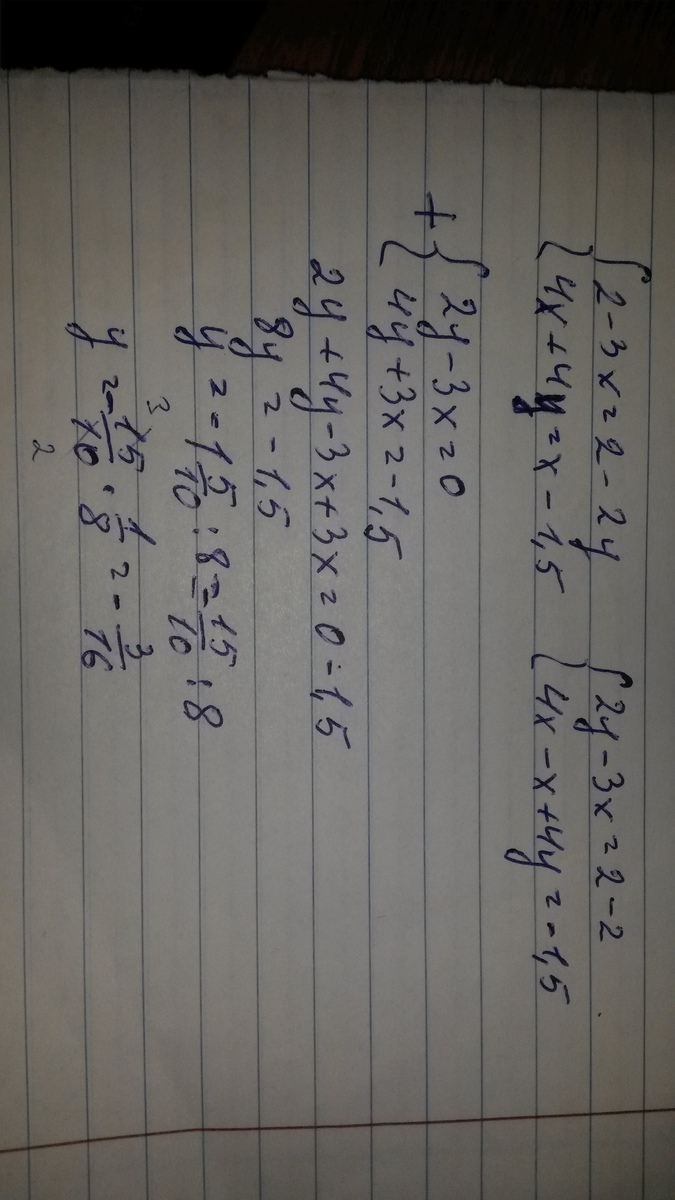 { 2-3x=2-2y { 2y-3x=2-2
{ 4x+4y=x-1,5 { 4x-x+4y=-1,5
+ { 2y-3x=0
{ 4y+3x=-1,5
2y+4y-3x+3x=0-1,5
8y=-1,5
y=-1 5/10 : 8 = -15/10 : 8
y=-15/10 · 1/8 = -3/16
3
2